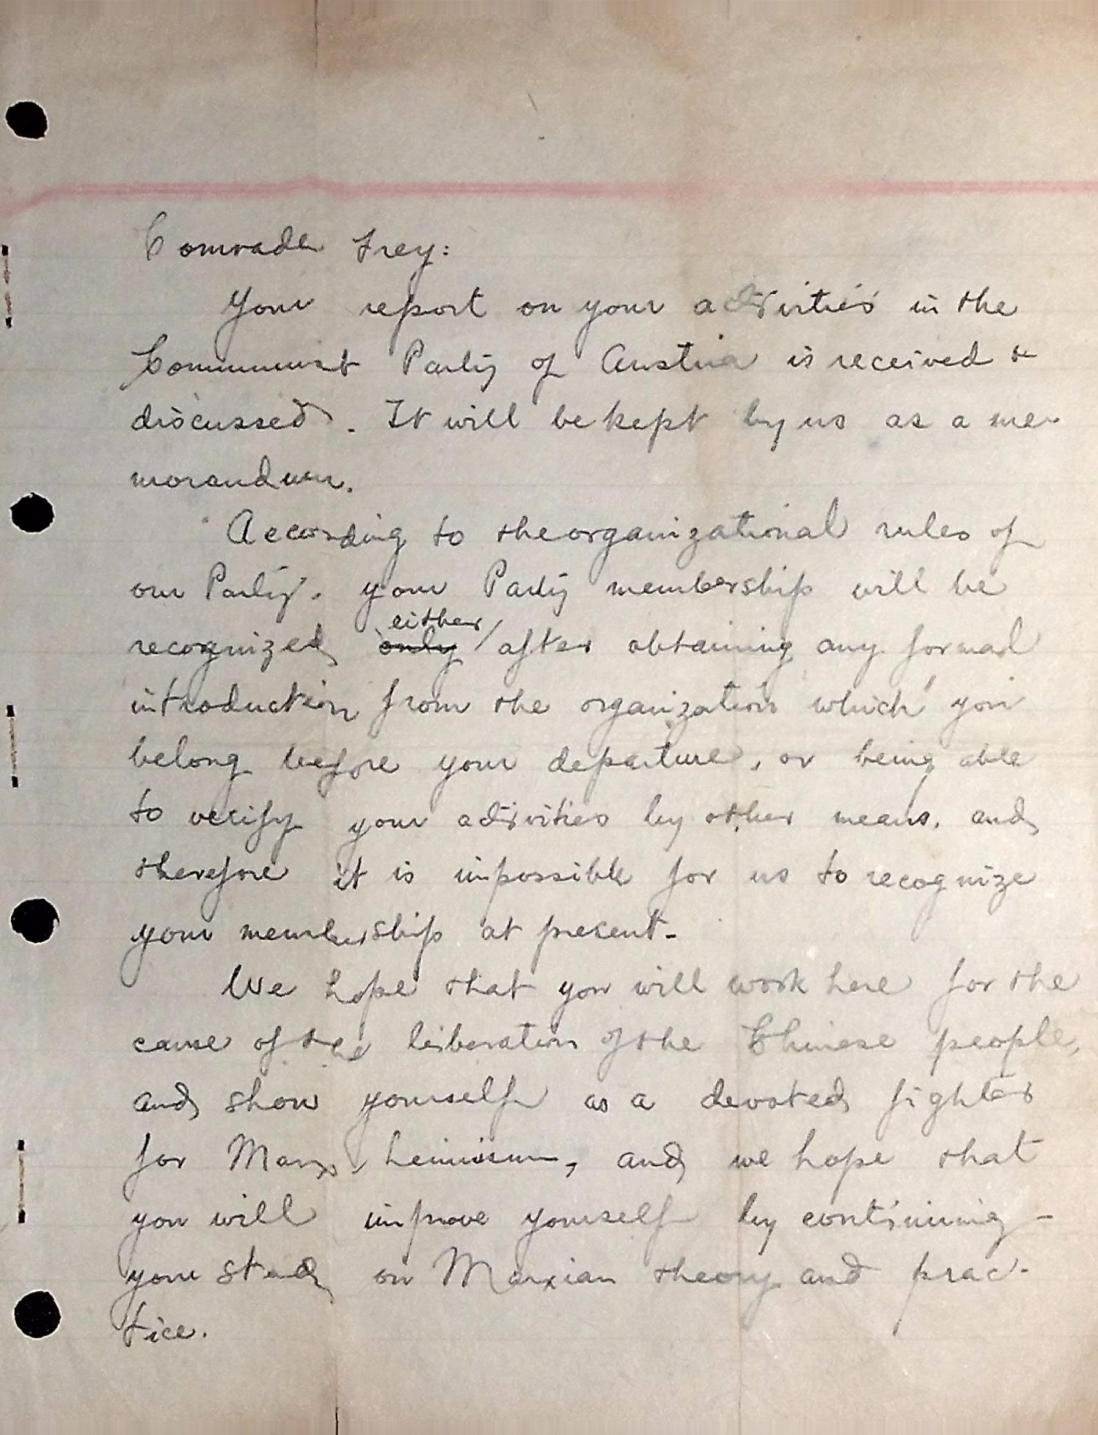 Comrade Frey:
Your report on your activities in the
Communist Party of Austria is received &
discussed. It will be kept by us as a me-
morandum.
According to the organizational rules of
our Party, your Party membership will be
recognized, only either / after obtaining any formal
introduction from the organization which you
belong before your departure, or being able
to verify your activities by other means, and
therefore it is impossible for us to recognize
your membership at present.
We hope that you will work here for the
cause of the liberation of the Chinese people,
and show yourself as a devoted fighter
for Marx, Leninism, and we hope that
you will improve yourself by continuing -
your study on Marxian theory and prac-
tice.